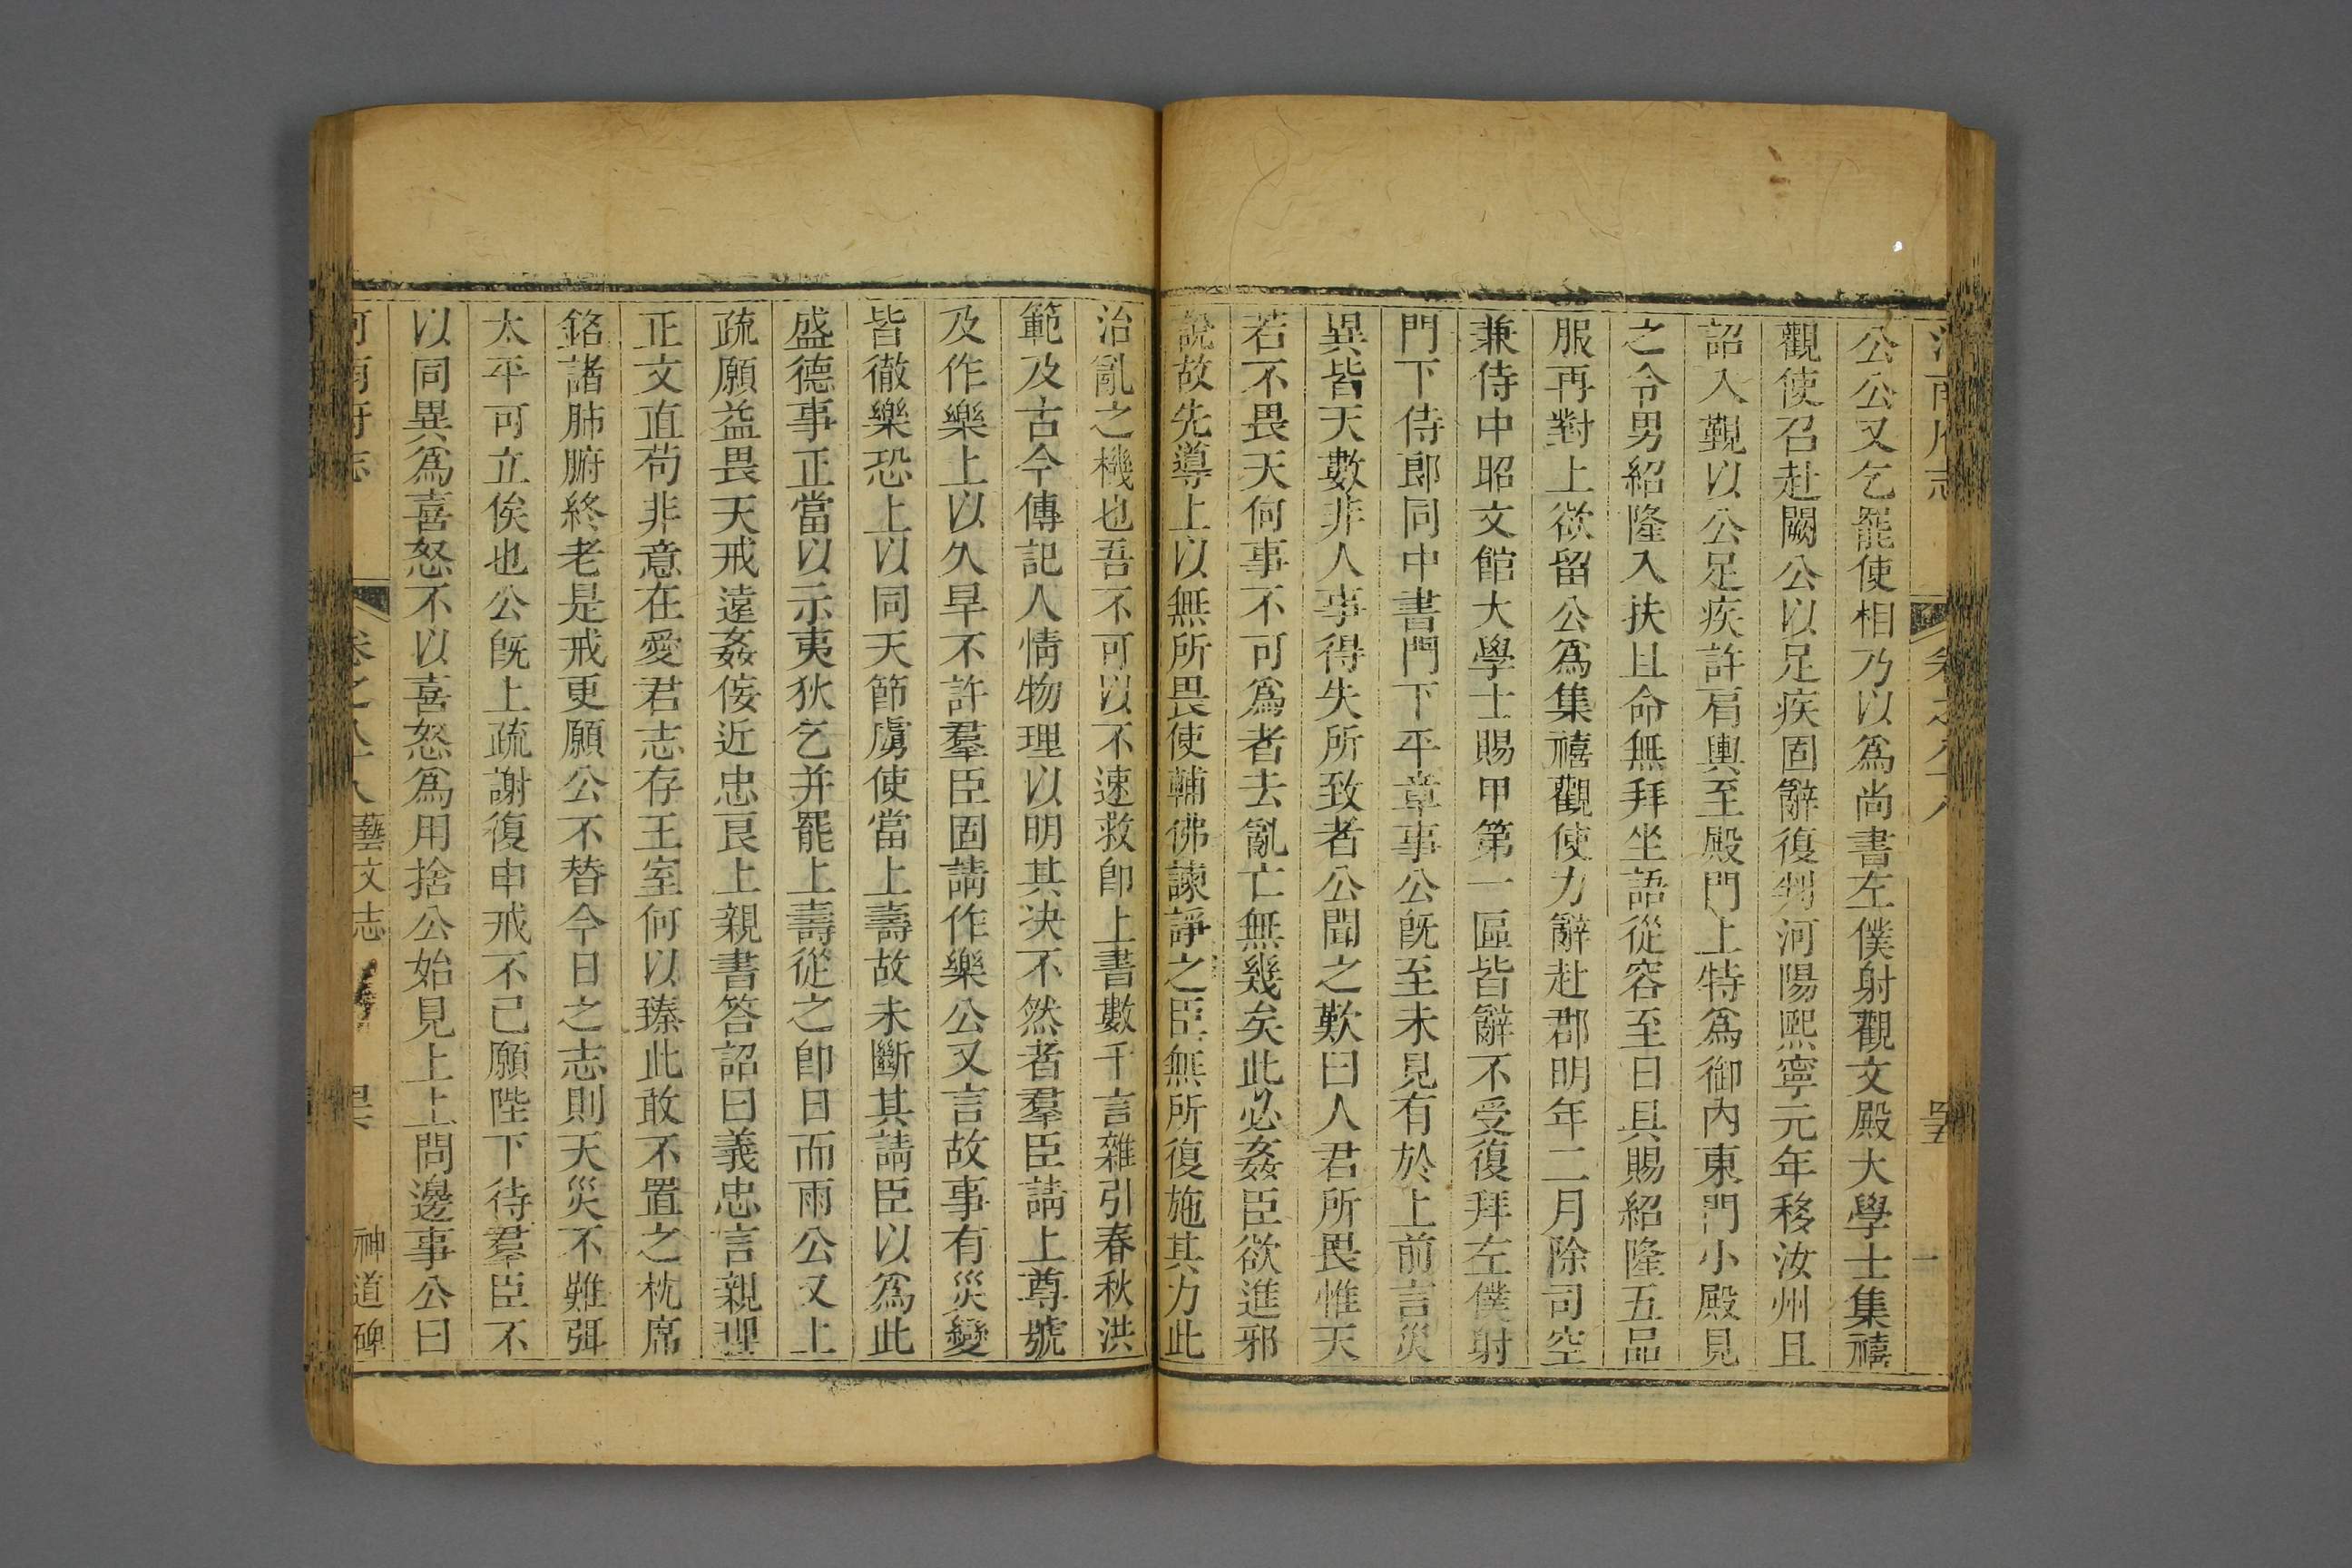 公公又乞罷使相乃以爲尚書左僕射觀文殿大學士集禧
觀使召赴闕公以足疾固辭復判河陽熙寧元年移汝州且
詔入覲以公足疾許肩輿至殿門上特爲御內東門小殿見
之令男紹隆入扶且命無拜坐語從容至日具賜紹隆五品
服再對上欲留公爲集禧觀使力辭赴郡明年二月除司空
兼侍中昭文館大學士賜甲第一區皆辭不受復拜左僕射
門下侍郎同中書門下平章事公旣至未見有於上前言災
異皆天數非人事得失所致者公聞之歎曰人君所畏惟天
若不畏天何事不可爲者去亂亡無幾矣此必姦臣欲進邪
說故先導上以無所畏使輔佛諫諍之臣無所復施其力此
治亂之機也吾不可以不速救卽上書數千言雜引春秋洪
範及古今傳記人情物理以明其决不然者羣臣請上尊號
及作樂上以久旱不許羣臣固請作樂公又言故事有災變
皆徹樂恐上以同天節虜使當上壽故未斷其請臣以爲此
盛德事正當以示夷狄乞并罷上壽從之卽日而雨公又上
疏願益畏天戒遠姦佞近忠良上親書答詔曰義忠言親理
正文直苟非意在愛君志存王室何以臻此敢不置之枕席
銘諸肺腑終老是戒更願公不替今日之志則天災不難弭
太平可立俟也公旣上疏謝復申戒不已願陛下待羣臣不
以同異爲喜怒不以喜怒爲用捨公始見上上問邊事公曰
河南府志 卷之八十八 藝文志 神道碑